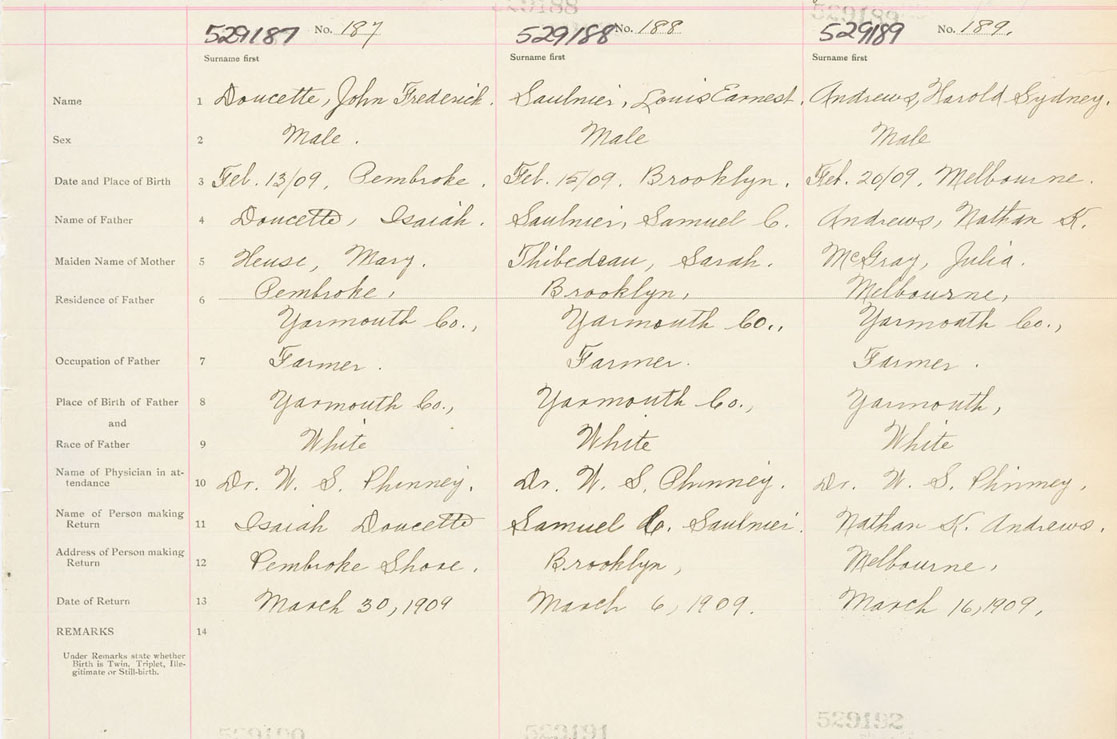 529188 529189
529187 No. 187 529188 No. 188 529189 No. 189.
Surname first Surname first Surname first
Name 1 Doucette, John Frederick. Saulnier, Louis Earnest. Andrews, Harold Sydney.
Sex 2 Male. Male Male
Date and Place of Birth 3 Feb. 13/09, Pembroke. Feb. 15/09. Brooklyn. Feb. 20/09. Melbourne.
Name of Father 4 Doucette, Isaiah. Saulnier, Samuel C. Andrews, Nathan K.
Maiden Name of Mother 5 Heuse, Mary. Thibedeau, Sarah. McGray, Julia.
Pembroke, Brooklyn, Melbourne,
Residence of Father 6
Yarmouth Co., Yarmouth Co., Yarmouth Co.,
Occupation of Father 7 Farmer. Farmer. Farmer.
Place of Birth of Father 8 Yarmouth Co., Yarmouth Co., Yarmouth,
and
Race of Father 9 White White White
Name of Physician in at-
tendance 10 Dr. W. S. Phinney. Dr. W. S. Phinney. Dr. W. S. Phinney.
Name of Person making
Return 11 Isaiah Doucette Samuel C. Saulnier. Nathan K. Andrews.
Address of Person making
Return 12 Pembroke Shore. Brooklyn, Melbourne,
Date of Return 13 March 30, 1909 March 6, 1909. March 16, 1909.
REMARKS 14
Under Remarks state whether
Birth is Twin, Triplet, Ille-
gitimate or Still-birth.
529190 529191 529192